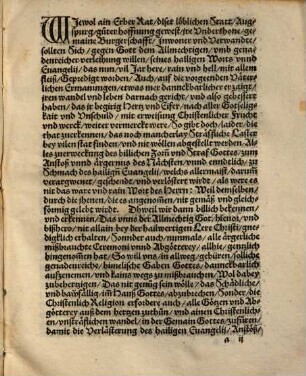 WJewol ain Erber Rat/ diser löblichen Statt/ Aug-
spurg/ güter hoffnung gewest/ ire Underthone/ ge-
maine Burgerschafft/ Jnwoner und Verwandte/
sollten Sich/ gegen Gott dem Allmechtigen/ vmb gena-
denreicher verleihung willen/ seines hailigen Worts vnnd
Euangelij/ das nun/ vil Jar here/ rain vnd hell/ mit allem
fleiß/ Gepredigt worden/ Auch/ auff die vorgeenden Väter-
lichen Ermanungen/ etwas mer danneckbarlicher erzaigt/
iren wandel vnd leben darnach gericht/ vnd also gebessert
haben/ das ir begirig Hertz vnd Eifer/ nach aller Gotseligk-
ait vnd Vnschuld/ mit erweisung Christenlicher Frucht
vnd werck/ weiter vermerckt were/ So gibt doch/ laider/ die
that zuerkennen/ das noch mancherlay Sträffliche Laster
bey vilen stat finden/ vnd nit wöllen abgestellt werden. Al-
les zuerweckung des billichen Zorn vnd Straf Gottes/ zum
Anstoß vnnd ärgernus des Nächsten/ vnnd enndtlich/ zu
Schmach des hailigen Euangelij/ welches allermeist/ darumb
verargwonet/ geschendt/ vnd verlöstert wirdt/ als were es
nit das ware vnd rain Wort des Herrn: Weil demselben/
durch die ihenen/ die es annemen/ nit gemäß vnd gleich-
förmig gelebt wirdt. Dhweil wir dann billich bekennen/
vnd erkennen/ Das vnns der Allmechtig Got/ hieuor/ vnd
bißhero/ nit allain bey der hailwertigen Lere Christi/ gne-
digklich erhalten/ Sonder auch/ nunmals/ alle ärgerliche
mißbreuche/ Ceremoni vnd Abgötterey/ allhie/ genntzlich
hingenom̄en hat/ So will vns/ in allweg/ gebüren/ sölliche
genadenreiche/ himelische Gaben Gottes/ danneckbarlich
auffzenemen/ vnd kains wegs zu mißbrauchen/ Wol dabey
zubehertzigen/ Das nit genüg sein wölle/ das Schädliche/
vnd Bawfällig/ im Hauß Gottes/ abzubrechen/ Sonder/ die
Christenlich Religion erfordere auch/ alle Götzen vnd Ab-
götterey auß dem hertzen zuthün/ vnd ainen Christenlich-
en/ vnsträfflichen wandel/ in der Gemain Gottes/ zufüren/
damit die Verlästerung des hailigen Euangelij/ Anstöß/
a ij